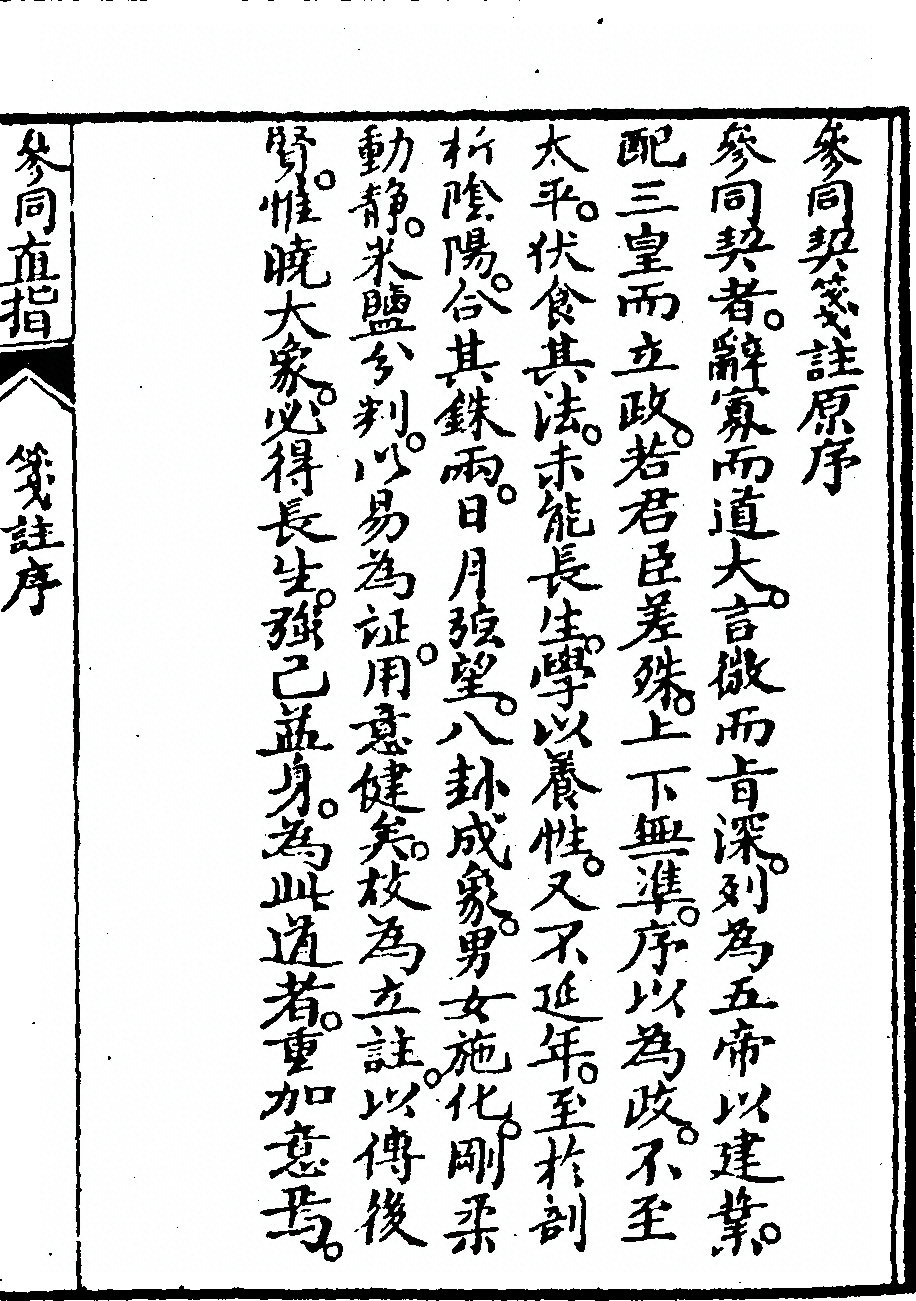 參同契箋註原序
參同契者。辭寡而道大。言微而旨深。列為五帝以建業。
配三皇而立政。若君臣差殊。上下無準。序以為政。不至
太平。伏食其法。未能長生。學以養性。又不延年。至於剖
析陰陽。合其銖兩。日月弦望。八卦成象。男女施化。剛柔
動靜。米鹽分判。以易為証。用意健矣。故為立註。以傳後
賢。惟曉大象。必得長生。強己益身。為此道者。重加意焉。
參同直指
箋註序